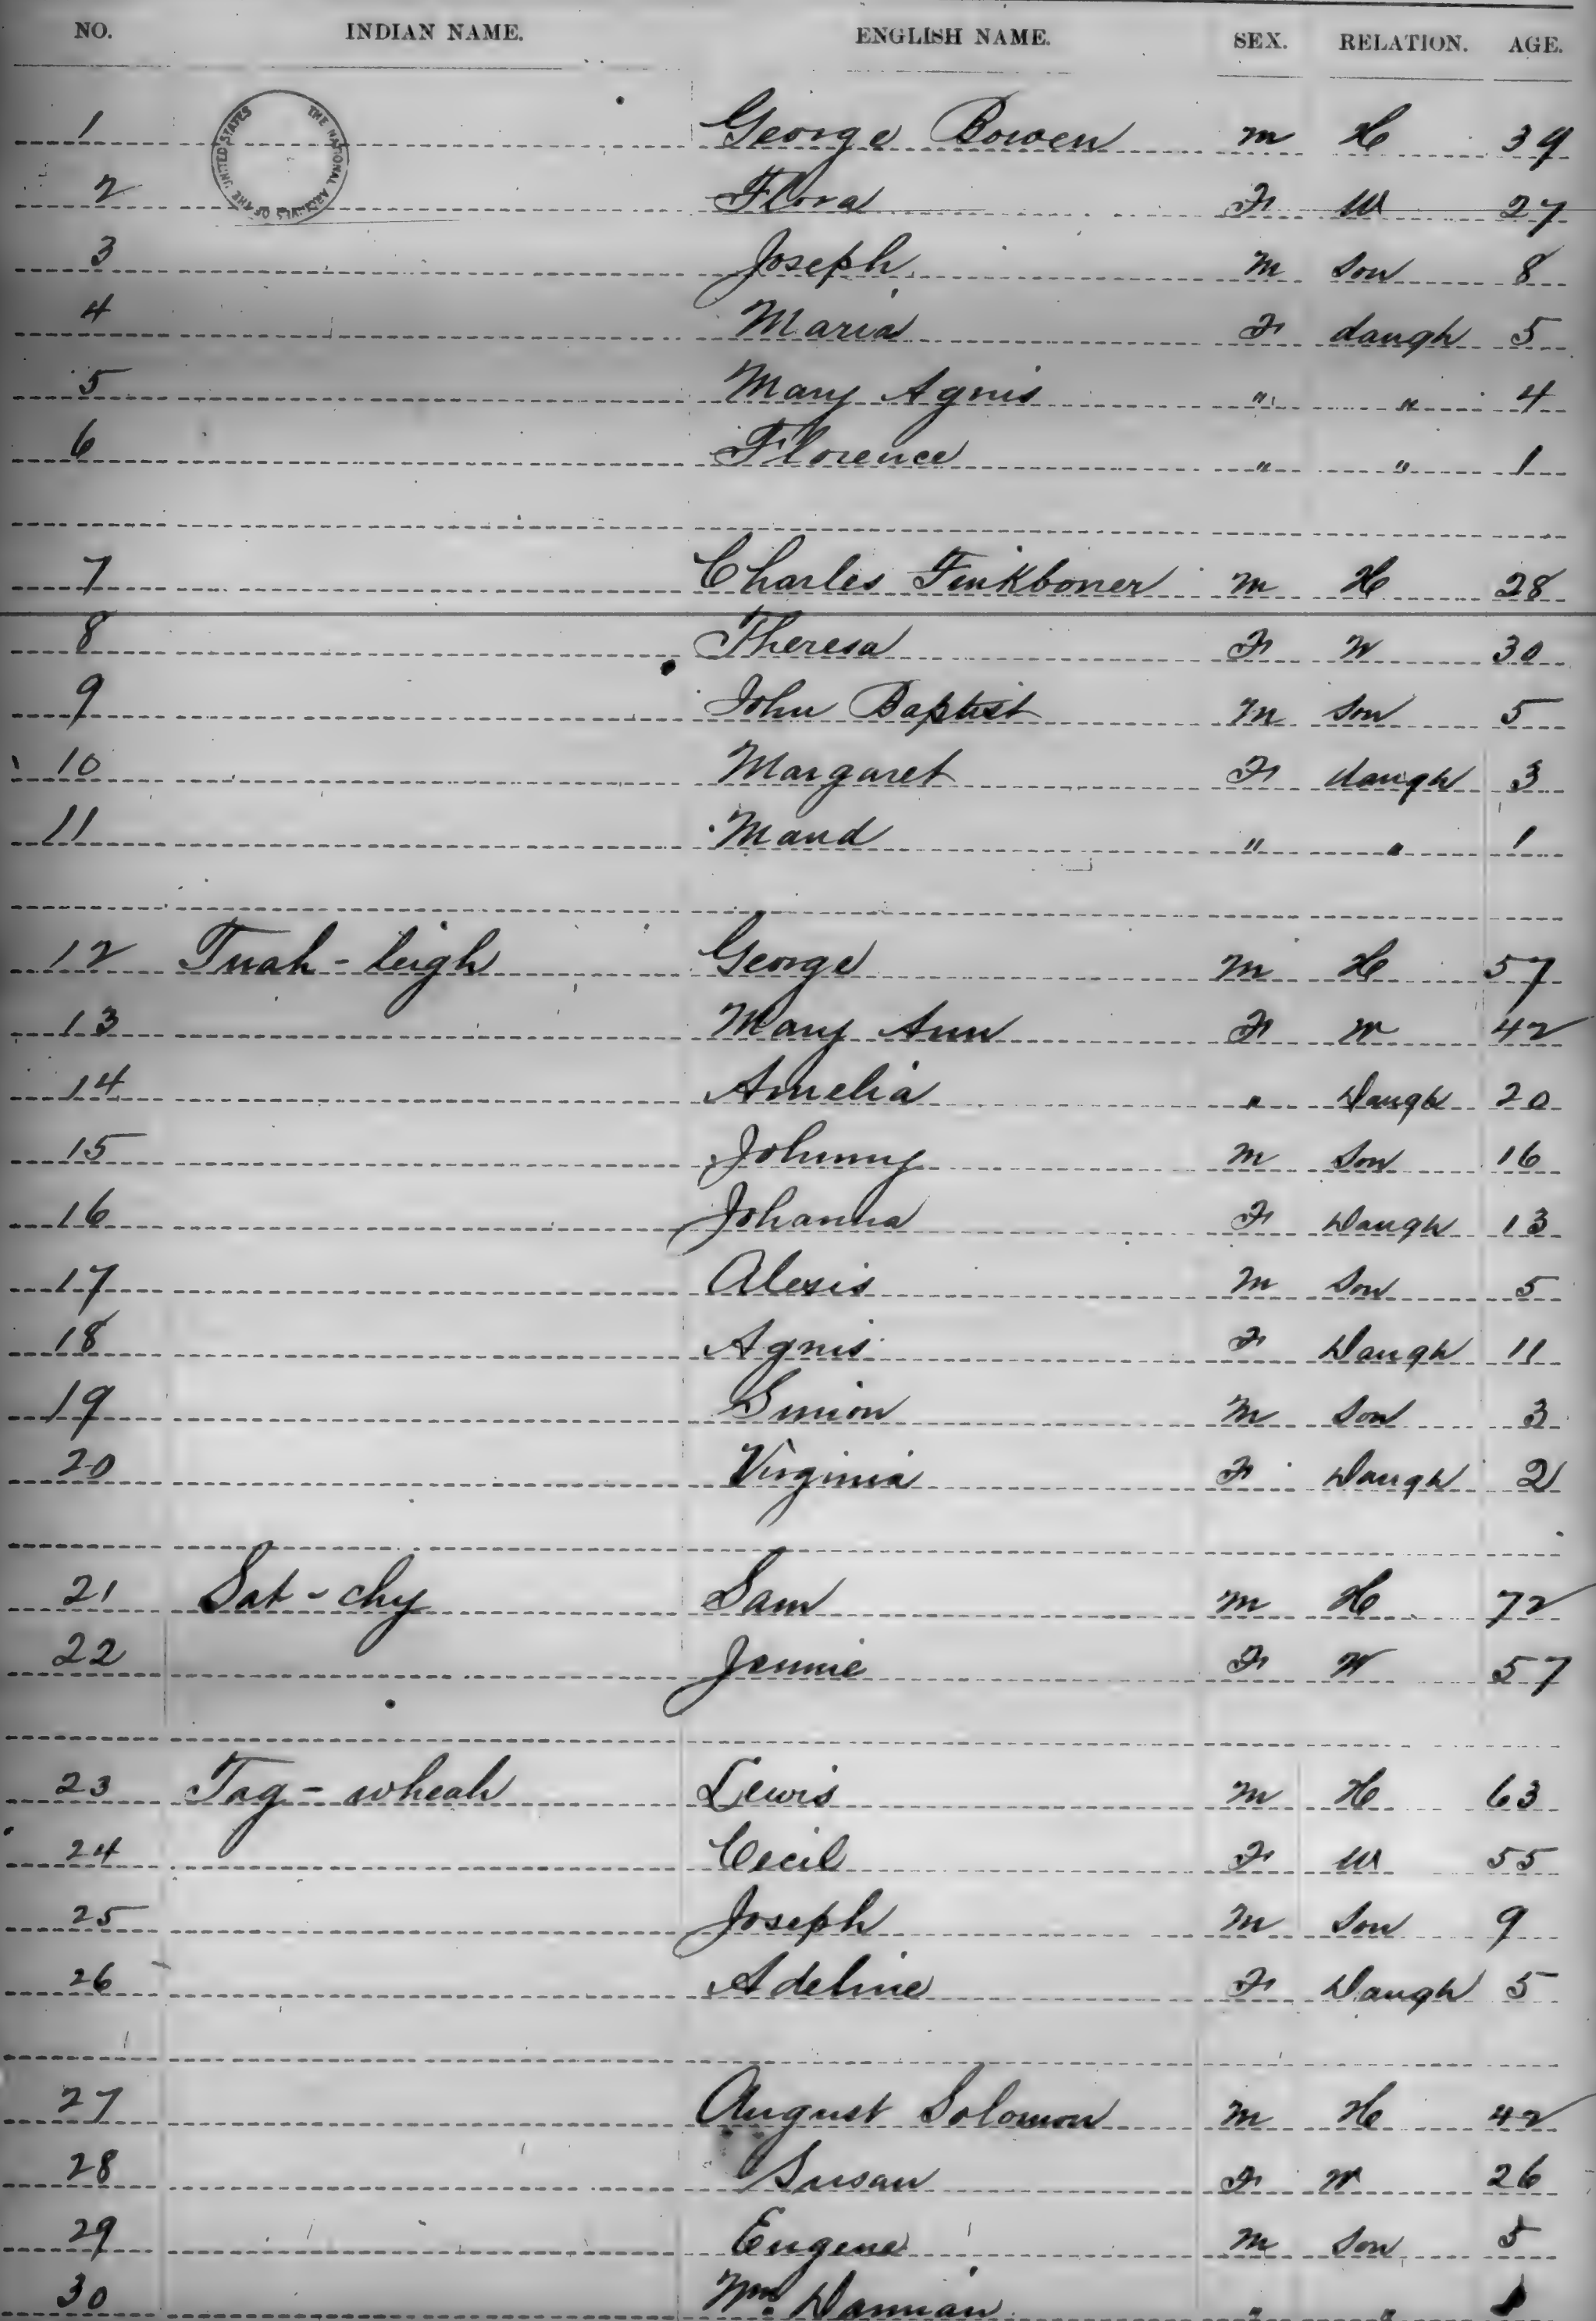 NO. INDIAN NAME. ENGLISH NAME. SEX. RELATION. AGE.
THE NATIONAL ARCHIVES OF THE UNITED STATES
1 George Bowen M H 39
2 Flora F W 27
3 Joseph M Son 8
4 Maria F daugh 5
5 Mary Agnis " " 4
6 Florence " " 1
7 Charles Finkboner M H 28
8 Theresa F W 30
9 John Baptist M Son 5
10 Margaret F daugh 3
11 Maud " " 1
12 Tuah-leigh George M H 57
13 Mary Ann F W 42
14 Amelia " Daugh 20
15 Johnny M Son 16
16 Johanna F Daugh 13
17 Alexis M Son 5
18 Agnis F Daugh 11
19 Simion M Son 3
20 Virginia F Daugh 2
21 Sat-chy Sam M H 72
22 Jennie F W 57
23 Tag-wheah Lewis M H 63
24 Cecil F W 55
25 Joseph M Son 9
26 Adeline F Daugh 5
27 August Solomon M H 42
28 Susan F W 26
29 Eugene M Son 5
30 Wm. Damian " "